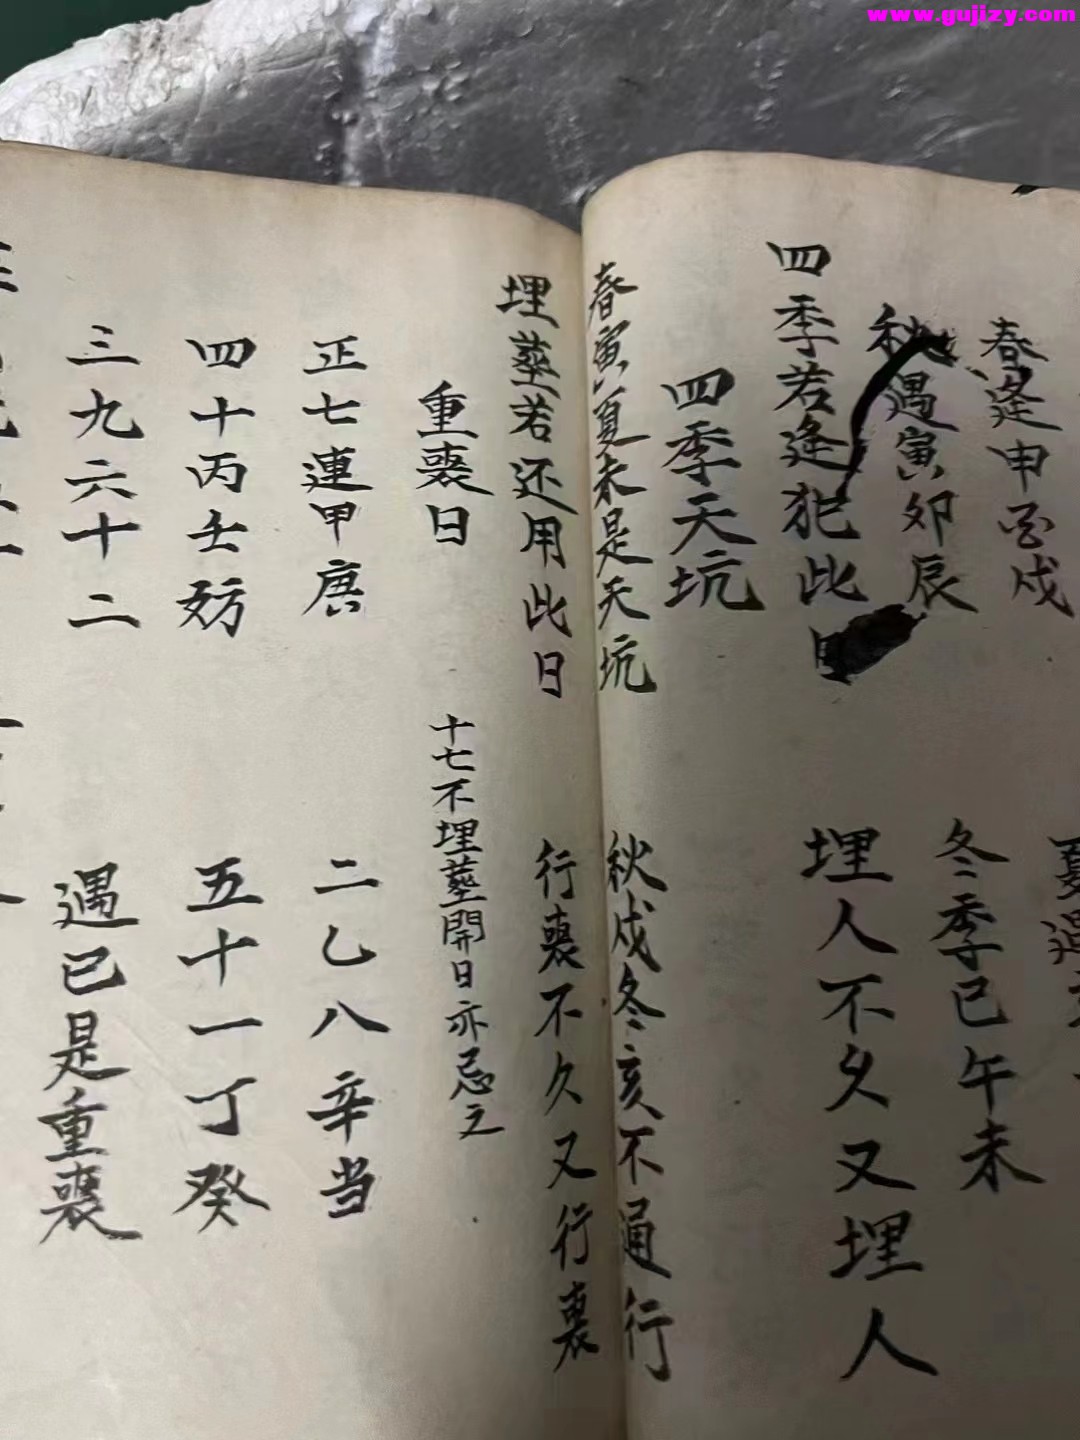 www.gujizy.com
春逢申酉戌
夏遇
秋遇寅卯辰
冬季巳午未
四季若逢犯此日
埋人不久又埋人
四季天坑
春寅夏未是天坑
秋戌冬亥不通行
埋葬若还用此日
行喪不久又行喪
重喪日
十七不埋葬開日亦忌之
正七連甲庚
二乙八辛当
四十丙壬妨
五十一丁癸
三九六十二
遇已是重喪